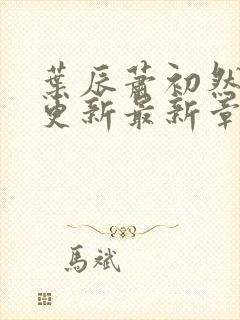 葉辰蕭初然
更新最新章
馬斌